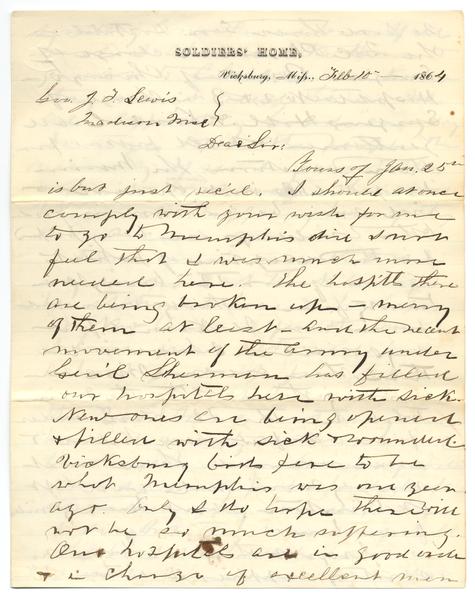 SOLDIERS' HOME,
Vicksburg, Miss., Feb 10th 1864
Gov. J. T. Lewis
Madison Wisc
Dear Sir:
Yours of Jan. 25th
is but just rec'd. I should at once
comply with your wish for me
to go to Memphis did I not
feel that I was much more
needed here. The hospitls there
are being broken up – many
of them at least – and the recent
movement of the army under
Gen'l Sherman has filled
our hospitals here with sick.
New ones are being opened
& filled with sick & wounded
Vicksburg bids fare to be
what Memphis was one year
ago. Only I do hope there will
not be so much suffering.
Our hospitals are in good order
& in charge of excellent men